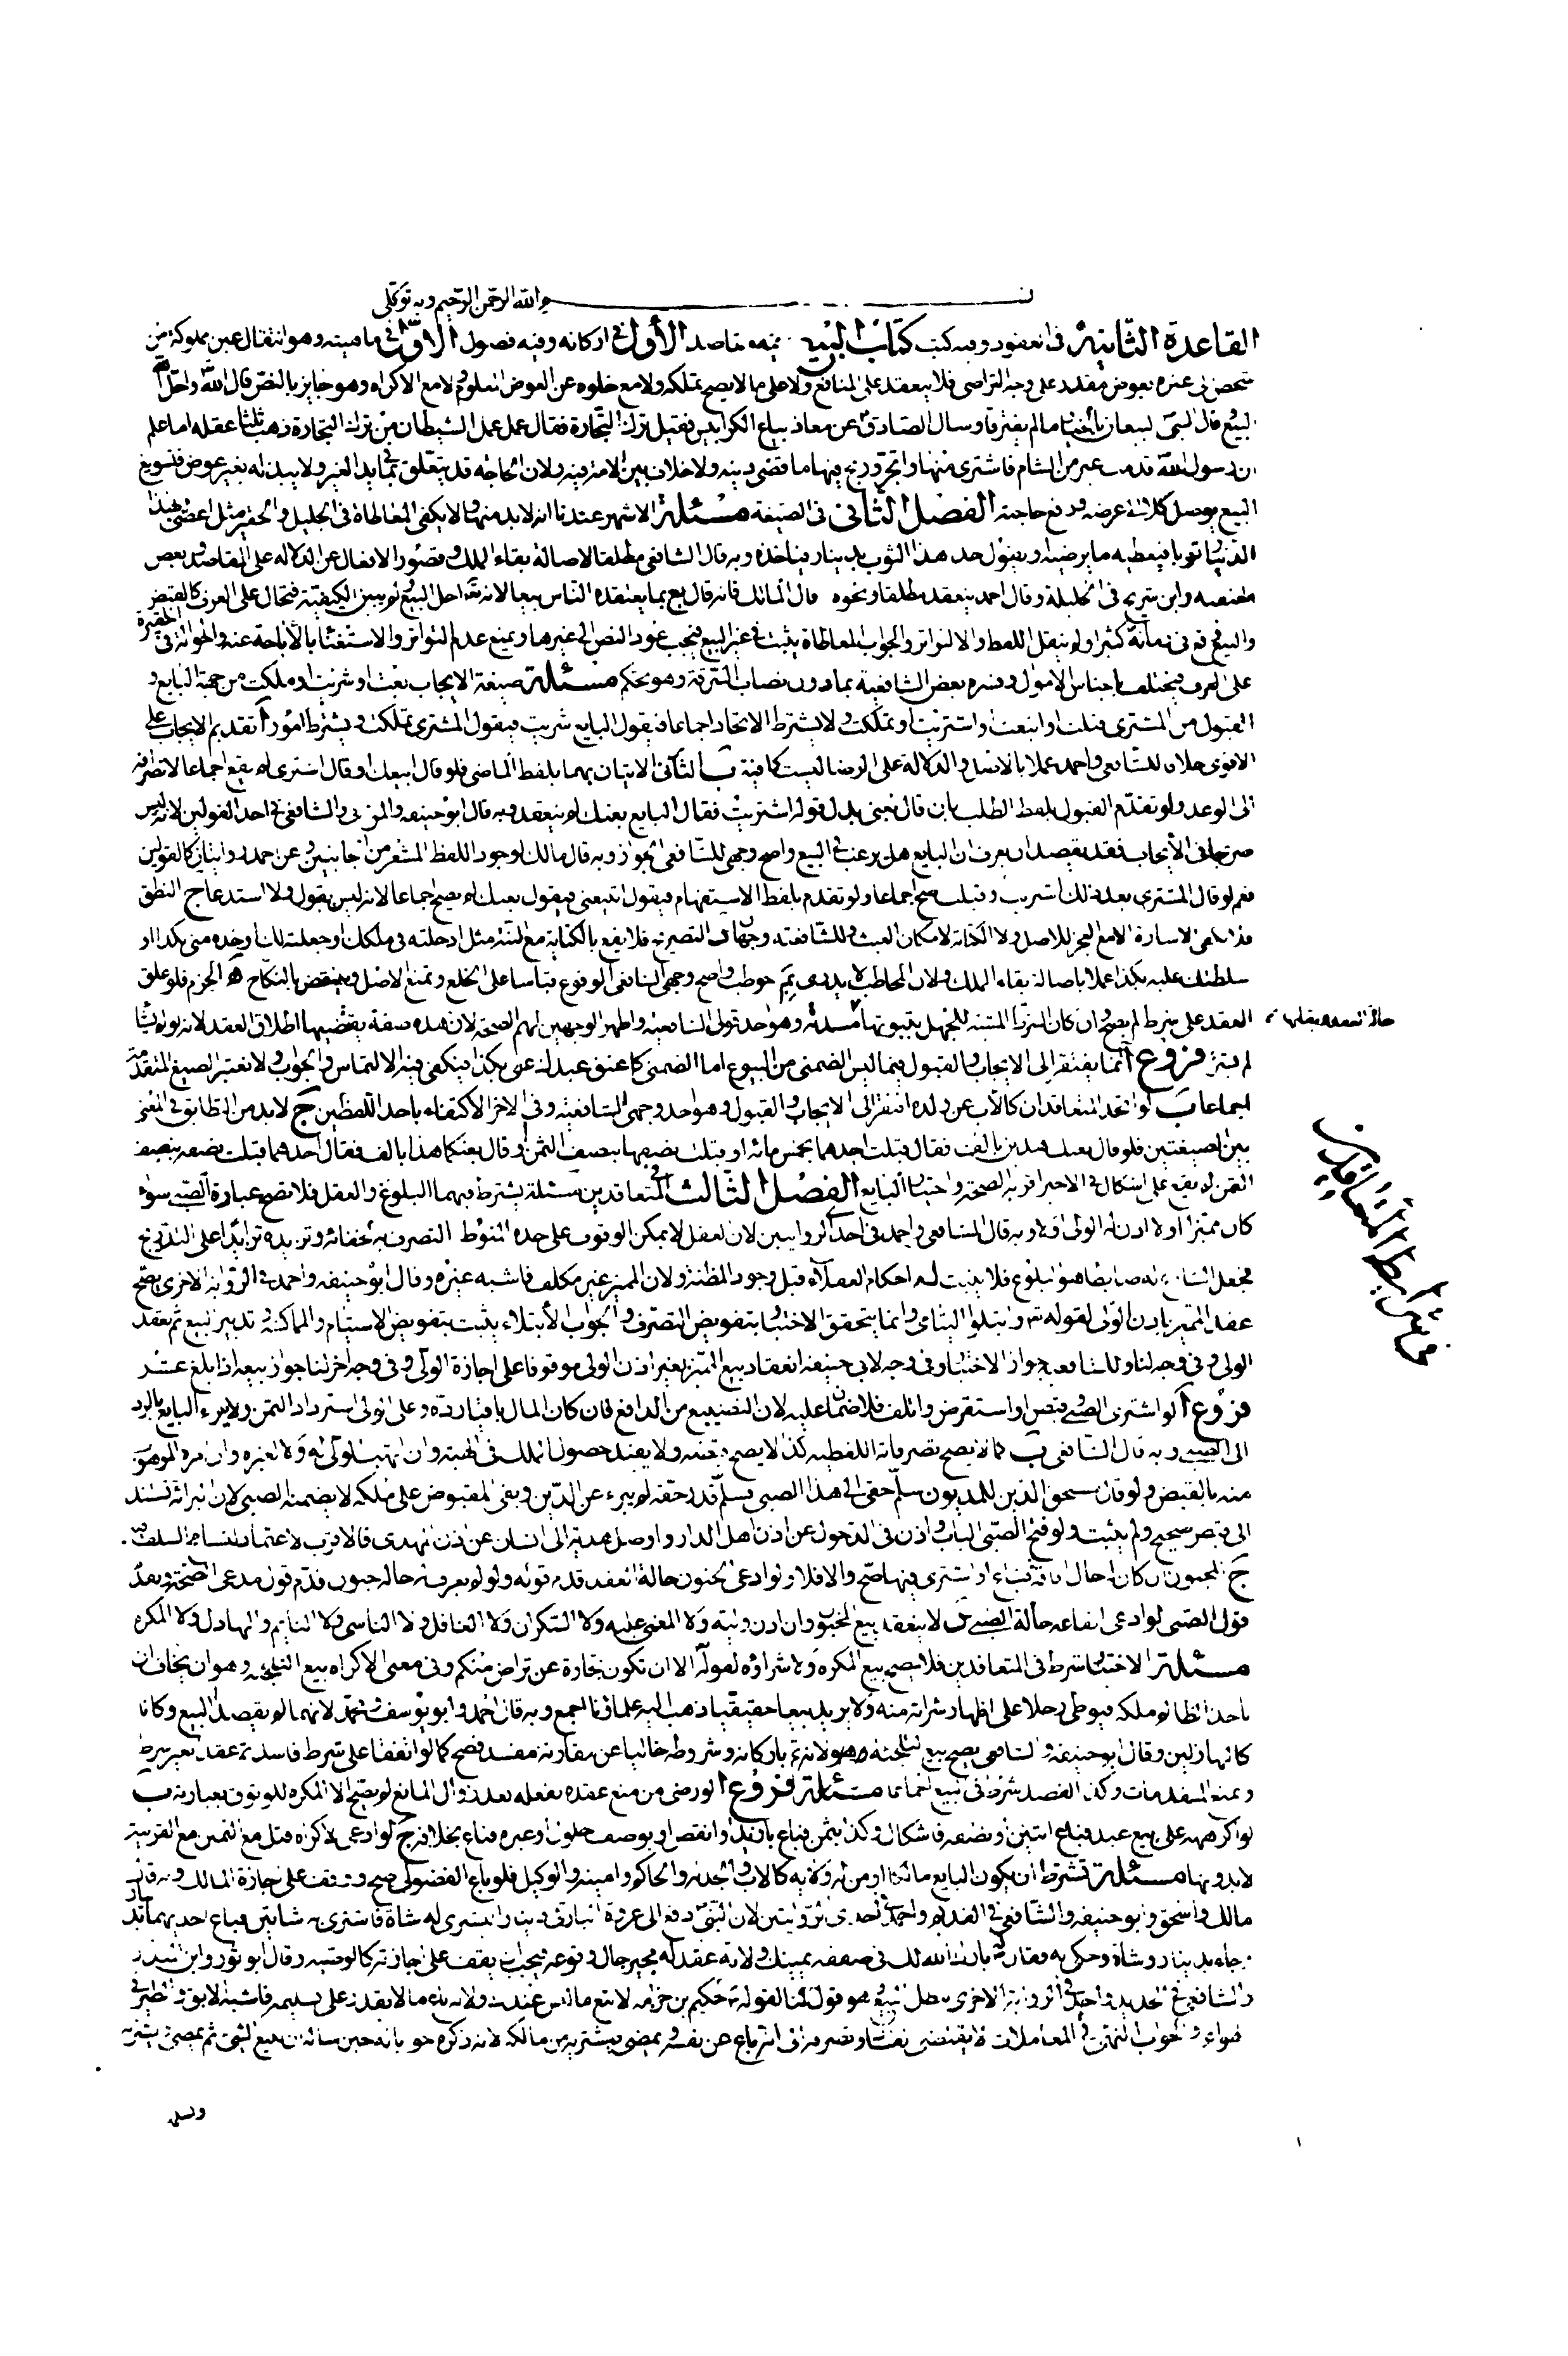 بسم الله الرحمن الرحيم وبه توكلي
القاعدة الثانية في العقود وفيه كتب كتاب البيع وفيه مقاصد الأول في اركانه وفيه فصول الاول في ماهيته وهو انتقال عين مملوكة من
شخص الى غيره بعوض مقدر على وجه التراضي فلا ينعقد على المنافع ولا على ما لا يصح تملكه ولا مع خلوه عن العوض المعلوم ولا مع الاكراه وهو جايز بالنص قال الله واحل الله
البيع قال النبي البيعان بالخيار ما لم يفترقا وسال الصادق عن معاذ بياع الكرابيس فقيل ترك التجارة فقال عمل عمل الشيطان من ترك التجارة ذهب ثلثا عقله اما علم
ان رسول الله قدمت عير من الشام فاشترى منها واتجر وربح فيها ما قضى دينه ولا خلاف بين الامة فيه ولان الحاجة قد يتعلق بما في يد الغير ولا يبذله بغير عوض فتسويغ
البيع يوصل كلا الى غرضه ودفع حاجته الفصل الثاني في الصيغة مسئلة الاشهر عندنا انه لابد منها ولا يكفي المعاطاة في الجليل والحقير مثل اعطني بهذا
الدينار ثوبا فيعطيه ما يرضيه او يقول خذ هذا الثوب بدينار فياخذه وبه قال الشافعي مطلقا لاصالة بقاء الملك وقصور الافعال عن الدلالة على المقاصد وبعض
الحنفية وابن شريح في الجليلة وقال احمد ينعقد مطلقا ونحوه قال مالك فانه قال بع بما يعتقده الناس بيعا لانه تعالى احل البيع ولم يبين الكيفية فيحال على العرف كالقبض
والبيع وقع في زمانه كثيرا ولم ينقل اللفظ والا لتواتر والجواب المعاطاة يثبت في غير البيع فيجب عود النص الى غيرها ويمنع عدم التواتر والاستغناء بالاباحة عنه والحوالة في الحقيرة
على العرف فيختلف باجناس الاموال وفسره بعض الشافعية بما دون نصاب السرقة وهو تحكم مسئلة صيغة الايجاب بعت او شريت او ملكت من جهة البايع و
القبول من المشتري قبلت او ابتعت او اشتريت او تملكت ولا يشترط الاتحاد اجماعا فيقول البايع شريت فيقول المشتري تملكت ويشترط امور آ تقديم الايجاب على
الاقوى خلافا للشافعي واحمد عملا بالاصل والدلالة على الرضا ليست كافية ب الثاني الاتيان بهما بلفظ الماضي فلو قال ابيعك او قال اشتري لم يقع اجماعا لانصرافه
الى الوعد ولو تقدم القبول بلفظ الطلب بان قال بعني بدل قوله اشتريت فقال البايع بعتك لم ينعقد وبه قال ابو حنيفه والمزني والشافعي في احد القولين لانه ليس
صريحا في الايجاب فقد يقصد ان يعرف ان البايع هل يرغب في البيع واصح وجهي للشافعي الجواز وبه قال مالك لوجود اللفظ المشعر من الجانبين وعن احمد روايتان كالقولين
نعم لو قال المشتري بعد ذلك اشتريت او قبلت صح اجماعا ولو تقدم بلفظ الاستفهام فيقول اتبيعني فيقول بعتك لم يصح اجماعا لانه ليس بقبول ولا استدعا ج النطق
فلا يكفي الاشارة الا مع العجز للاصل ولا الكتابة لامكان العبث وللشافعية وجهان د التصريح فلا يقع بالكناية مع النية مثل ادخلته في ملكك او جعلته لك او خذه مني بكذا او
سلطتك عليه بكذا عملا باصالة بقاء الملك ولان المخاطب لا يدري بم خوطب واصح وجهي الشافعي الوقوع قياسا على الخلع ونمنع الاصل وينتقض بالنكاح ه الجزم فلو علق
العقد على شرط لم يصح وان كان الشرط المشية للجهل بثبوتها حال العقد وبقائها مدته وهو احد قولي الشافعية واظهر الوجهين لهم الصحة لان هذه صفة يقتضيها اطلاق العقد لانه لو لم يشأ
لم يشتر فروع آ انما يفتقر الى الايجاب والقبول فيما ليس الضمني من البيوع اما الضمني كاعتق عبدك عني بكذا فيكفي فيه الالتماس والجواب ولا تعتبر الصيغ المتقدمة
اجماعا ب لو اتحد المتعاقدان كالاب عن ولده افتقر الى الايجاب والقبول وهو احد وجهي الشافعية وفي الاخر الاكتفاء باحد اللفظين ج لابد من التطابق في المعنى
بين الصيغتين فلو قال بعتك هذين بالف فقال قبلت احدهما بخمس مائة او قبلت نصفهما بنصف الثمن او قال بعتكما هذا بالف فقال احدهما قبلت نصفه بنصف
الثمن لم يقع على اشكال في الاخير اقربه الصحة واختيار البايع الفصل الثالث في المتعاقدين مسئلة يشترط فيهما البلوغ والعقل فلا تصح عبارة الصبي سواء
كان مميزا او لا اذن له الولي او لا وبه قال الشافعي واحمد في احدى الروايتين لان العقل لا يمكن الوقوف على حده المنوط التصرف به لخفائه وتزيده تزايدا على التدريج
فجعل الشارع له ضابطا هو البلوغ فلا يثبت له احكام العقلاء قبل وجود المظنة ولان المميز غير مكلف فاشبه غيره وقال ابو حنيفه واحمد في الرواية الاخرى يصح
عقد المميز باذن الولي لقوله تعالى وابتلوا اليتامى وانما يتحقق الاختبار بتفويض التصرف والجواب الابتلاء يثبت بتفويض الاستيام والمماكسة وتدبير البيع ثم يعقد
الولي وفي وجه لنا وللشافعي جواز الاختبار وفي وجه لابي حنيفة انعقاد بيع المميز بغير اذن الولي موقوفا على اجازة الولي وفي وجه اخر لنا جواز بيعه اذا بلغ عشرا
فروع آ لو اشترى الصبي وقبض او استقرض واتلف فلا ضمان عليه لان التضييع من الدافع فان كان المال باقيا رده وعلى الولي استرداد الثمن ولا يبرء البايع بالرد
الى الصبي وبه قال الشافعي ب كما لا يصح تصرفاته اللفظية كذا لا يصح قبضه ولا يفيد حصول الملك في الهبة وان اتهب له الولي ولا لغيره وان امره الموهوب
منه بالقبض ولو قال مستحق الدين للمديون سلم حقي الى هذا الصبي فسلم قدر حقه لم يبرء عن الدين وبقي المقبوض على ملكه لا يضمنه الصبي لان البراءة تستند
الى قبض صحيح ولم يثبت ولو فتح الصبي الباب واذن في الدخول عن اذن اهل الدار او اوصل هدية الى انسان عن اذن المهدي فالاقرب الاعتماد لتسامح السلف فيه
ج المجنون ان كان له حال افاقة فباع او اشترى فيها صح والا فلا ولو ادعى الجنون حالة العقد قدم قوله ولو لم يعرف له حالة جنون قدم قول مدعي الصحة ويقدم
قول الصبي لو ادعى ايقاعه حالة الصبى د لا ينعقد بيع المجنون وان اذن وليه ولا المغمى عليه ولا السكران ولا الغافل ولا الناسي ولا النائم ولا الهازل ولا المكره
مسئلة الاختيار شرط في المتعاقدين فلا يصح بيع المكره ولا شراؤه لقوله الا ان تكون تجارة عن تراض منكم وفي معنى الاكراه بيع التلجئه وهو ان يخاف ان
ياخذ الظالم ملكه فيواطي رجلا على اظهار شرائه منه ولا يريد بيعا حقيقيا ذهب اليه علماؤنا اجمع وبه قال احمد وابو يوسف ومحمد لانهما لم يقصدا البيع وكانا
كالهازلين وقال ابو حنيفه والشافعي يصح بيع التلجئة لانه تم باركانه وشروطه خاليا عن مقارنة مفسد فصح كما لو اتفقا على شرط فاسد ثم عقدا بغير شرط
ونمنع المقدمات وكذا القصد شرط في البيع اجماعا مسئلة فروع آ لو رضي من منع عقده بفعله بعد زوال المانع لم يصح الا المكره للوثوق بعبارته ب
لو اكرهه على بيع عبد فباع اثنين او نصفه فاشكال وكذا بثمن فباع بازيد او انقص او بوصف حلول او غيره فباع بخلافه ج لو ادعى الاكراه قبل مع اليمين مع القرينة
لا بدونها مسئلة يشترط ان يكون البايع مالكا او من له ولاية كالاب والجد له والحاكم وامينه والوكيل فلو باع الفضولي صح ووقف على اجازة المالك وبه قال
مالك واسحق وابو حنيفه والشافعي في القديم واحمد في احدى الروايتين لان النبي دفع الى عروة البارقي دينارا ليشتري له شاة فاشترى به شاتين فباع احديهما بدينار
وجاء بدينار وشاة وحكى له فقال له بارك الله لك في صفقة يمينك ولانه عقد له مجيز حال وقوعه فيجب ان يقف على اجازته كالوصية وقال ابو ثور وابن المنذر
والشافعي في الجديد واحمد في الرواية الاخرى يبطل البيع وهو قول لنا لقوله لحكيم بن حزام لا تبع ما ليس عندك ولانه باع ما لا يقدر على تسليمه فاشبه الآبق والطير في
الهواء والجواب النهي في المعاملات لا يقتضي الفساد ونصرفه الى انه باع عن نفسه ويمضي ليشتريه من مالكه لانه ذكره جوابا له حين ساله انه يبيع الشيء ثم يمضي يشتريه
ويسلمه
حالة العقد وبقائها
في شرايط المتعاقدين